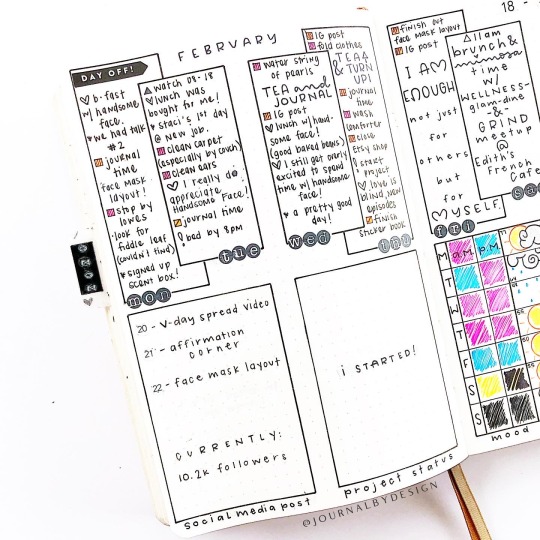 FEBRUARY
18 -
DAY OFF!
♡ b-fast
w/ handsome
face.
* we had talk
#2
journal
time
face mask
layout!
stop by
lowes
look for
fiddle leaf
(couldn't find)
* signed up
scent box!
mon
△ watch 08-18
♡ lunch was
bought for me!
* staci's 1st day
@ new job.
clean carpet
(especially by couch)
clean ears
♡ I really do
appreciate
Handsome Face!
journal time
bed by 8pm
tue
water string
of pearls
TEA and
JOURNAL
IG post
♡ lunch w/ hand-
some face!
(good baked beans)
♡ I still get overly
excited to spend
time w/ handsome
face!
* a pretty good
day!
wed
IG post
fold clothes
TEA
& TURN
UP!
journal
time
wash
comforter
close
etsy shop
start
project
♡ love is
blind new
episodes
finish
sticker book
thu
finish out
face mask layout
IG post
I AM
ENOUGH
not just
for
others
but
for
MYSELF.
fri
△ 11am
brunch &
mimosa
time
w/
WELLNESS-
glam-dine
-&-
GRIND
meetup
@
Edith's
French
Cafe
sa
20 - V-day spread video
21 - affirmation
corner
22 - face mask layout
CURRENTLY:
10.2k followers
social media post
i STARTED!
project status
@JOURNALBYDESIGN
a.m. p.m.
M
T
W
T
F
S
S
mood